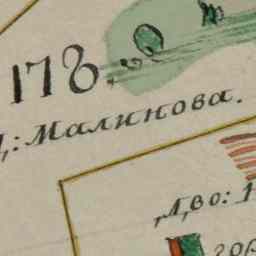 178.
Д,: Малинова.
Д,во:
гор